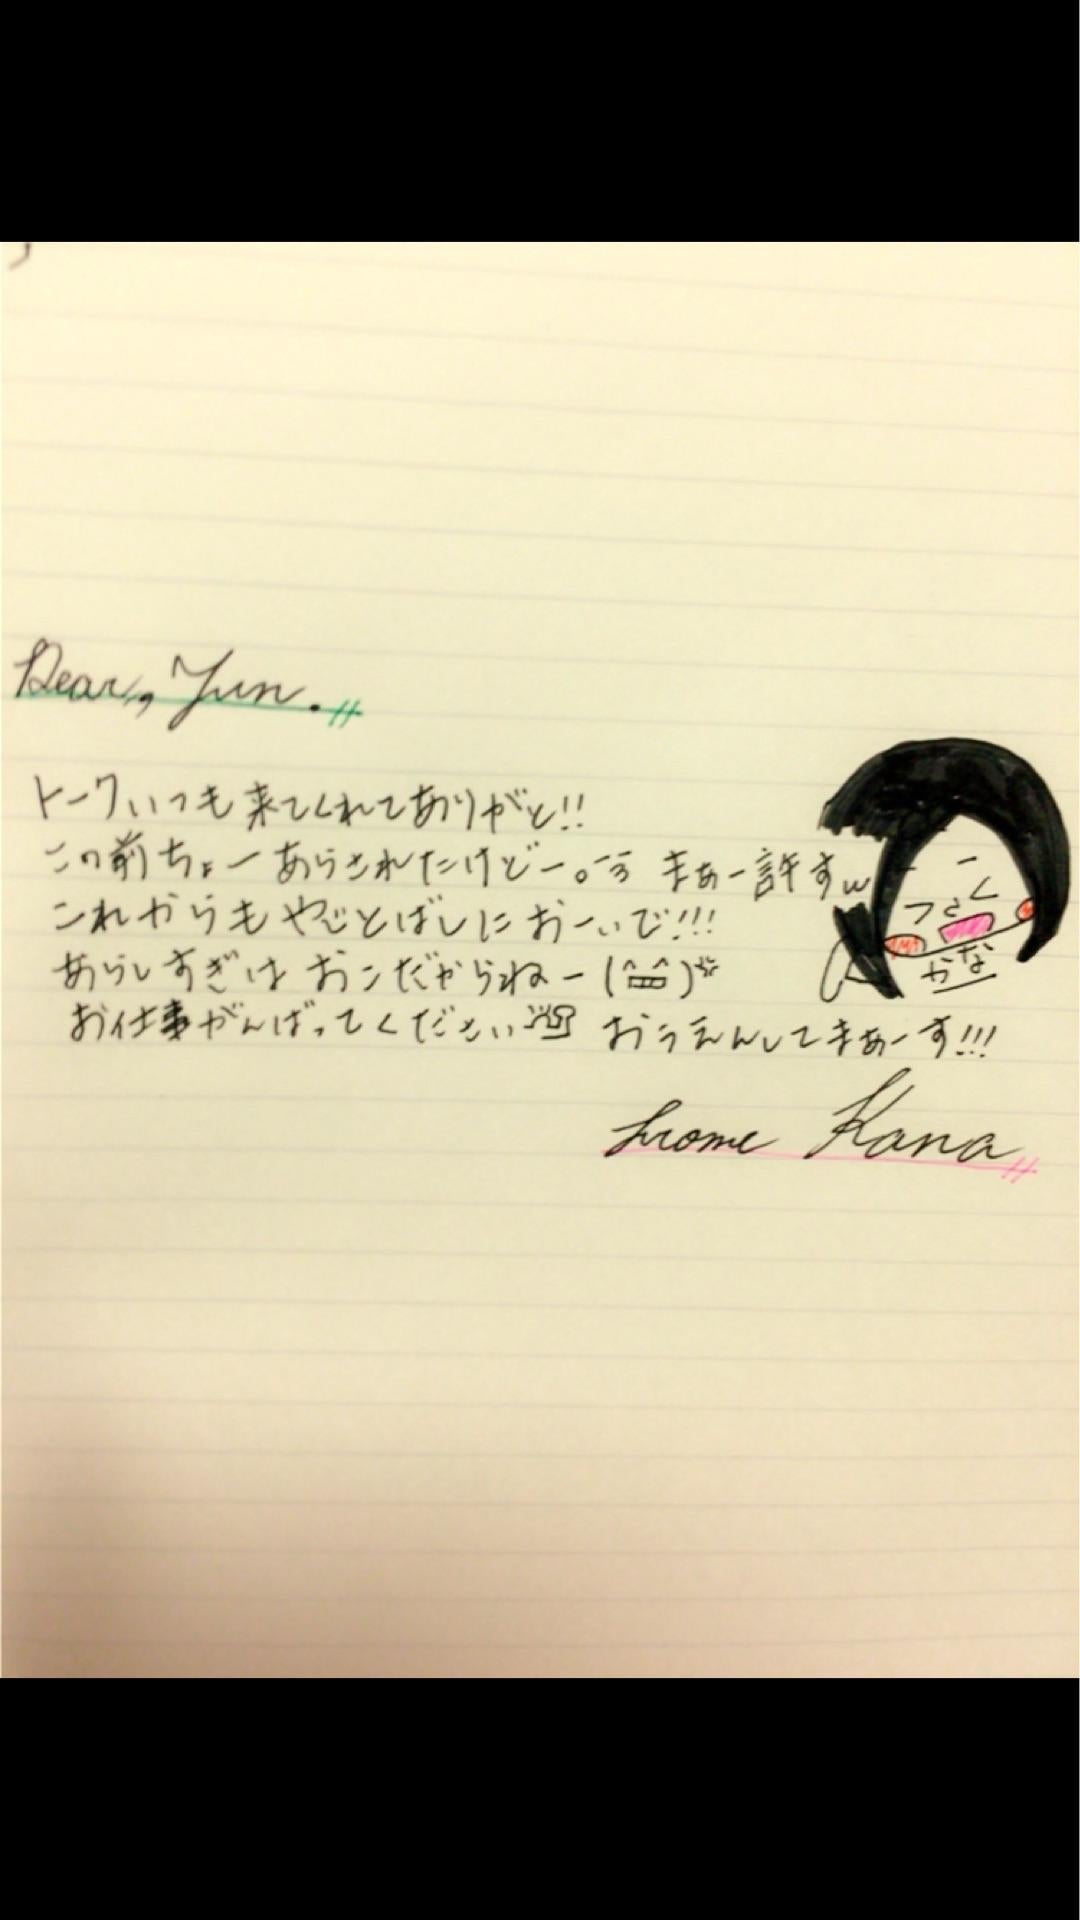 Dear, Yun.
トークいつも来てくれてありがと!!
この前ちょーあらされたけどー。 まぁー許すw
これからもやじとばしにおーいで!!!
あらしすぎはおこだからねー
お仕事がんばってください おうえんしてまぁーす!!!
かな
frome Kana